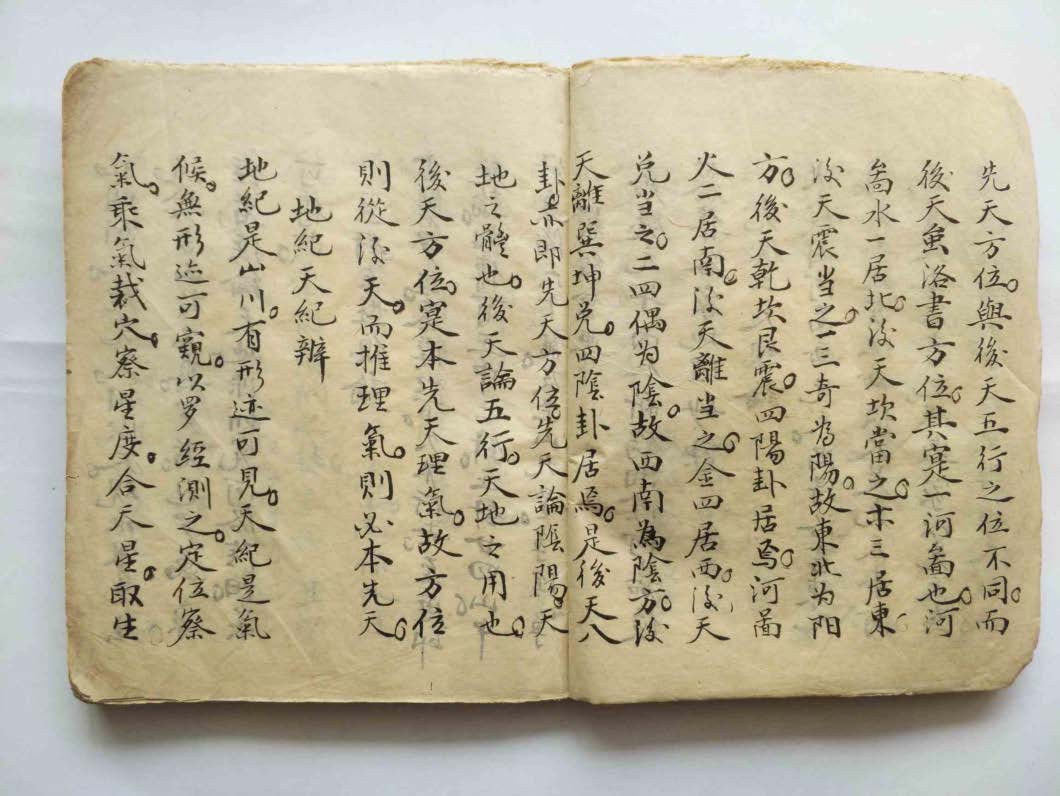 先天方位。與後天五行之位不同。而
後天虽洛書方位。其寔一河啚也。河
啚水一居北。後天坎當之。木三居東。
後天震当之。一三奇為陽。故東北为阳
方。後天乾坎艮震。四陽卦居焉。河啚
火二居南。後天離當之。金四居西。後天
兑当之。二四偶为陰。故西南為陰方。後
天離巽坤兑。四陰卦居焉。是後天八
卦亦即先天方位。先天論陰陽。天
地之體也。後天論五行。天地之用也。
後天方位。寔本先天理氣。故方位
則從後天。而推理氣。則必本先天。
地紀天紀辨
地紀是山川。有形迹可見。天紀是氣
候。無形迹可窺。以罗經測之。定位察
氣。乘氣裁穴。察星度。合天星。取生